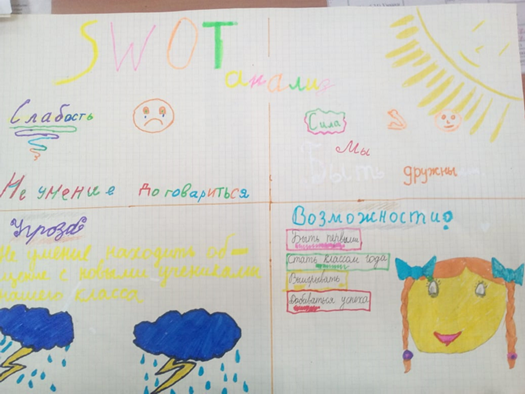 SWOT
анализ
Слабость
Не умение договориться
Сила
Мы
Быть дружны
Угроза
Не умение находить об-
с новыми учениками
нашего класса
Возможности:
Быть первыми
Стать классом года
Выигрывать
Добиваться успеха